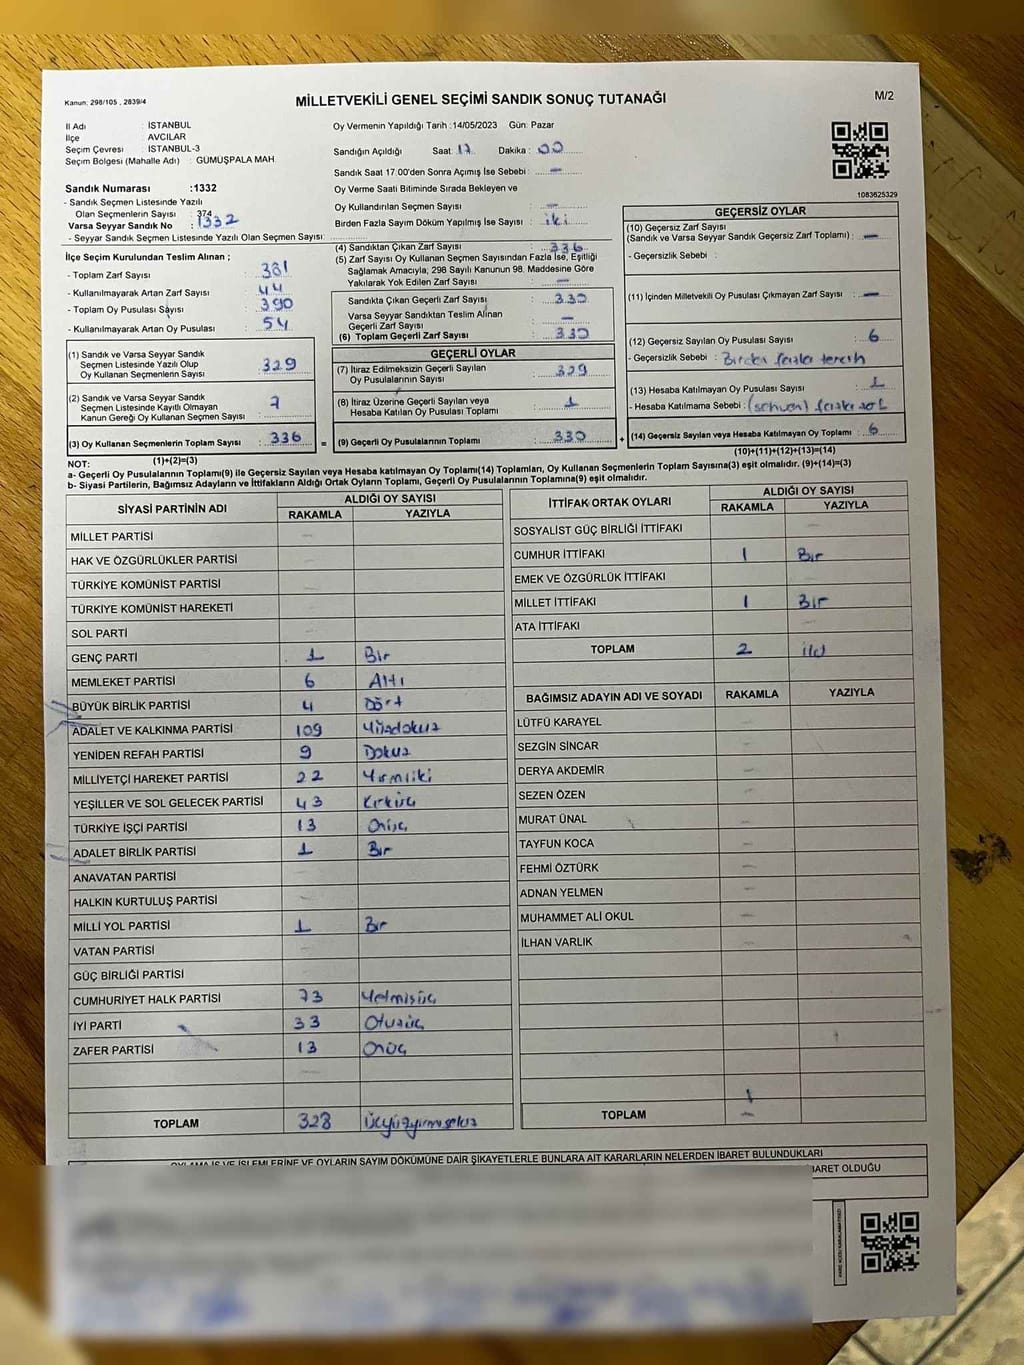 Kanun: 298/105 , 2839/4
MİLLETVEKİLİ GENEL SEÇİMİ SANDIK SONUÇ TUTANAĞI
M/2
İl Adı : İSTANBUL
İlçe : AVCILAR
Seçim Çevresi : İSTANBUL-3
Seçim Bölgesi (Mahalle Adı) : GÜMÜŞPALA MAH.
Oy Vermenin Yapıldığı Tarih :14/05/2023 Gün: Pazar
Sandığın Açıldığı Saat: 17 Dakika : 00
Sandık Saat 17.00'den Sonra Açımış İse Sebebi : —
Oy Verme Saati Bitiminde Sırada Bekleyen ve
Oy Kullandırılan Seçmen Sayısı : —
Birden Fazla Sayım Döküm Yapılmış İse Sayısı : iki
1083625329
Sandık Numarası :1332
- Sandık Seçmen Listesinde Yazılı
Olan Seçmenlerin Sayısı : 374
Varsa Seyyar Sandık No : 1332
- Seyyar Sandık Seçmen Listesinde Yazılı Olan Seçmen Sayısı:
İlçe Seçim Kurulundan Teslim Alınan ;
- Toplam Zarf Sayısı : 381
- Kullanılmayarak Artan Zarf Sayısı : 44
- Toplam Oy Pusulası Sayısı : 390
- Kullanılmayarak Artan Oy Pusulası : 54
(1) Sandık ve Varsa Seyyar Sandık
Seçmen Listesinde Yazılı Olup
Oy Kullanan Seçmenlerin Sayısı : 329
(2) Sandık ve Varsa Seyyar Sandık
Seçmen Listesinde Kayıtlı Olmayan
Kanun Gereği Oy Kullanan Seçmen Sayısı : 7
(3) Oy Kullanan Seçmenlerin Toplam Sayısı : 336
(1)+(2)=(3)
(4) Sandıktan Çıkan Zarf Sayısı : 336
(5) Zarf Sayısı Oy Kullanan Seçmen Sayısından Fazla İse, Eşitliği
Sağlamak Amacıyla; 298 Sayılı Kanunun 98. Maddesine Göre
Yakılarak Yok Edilen Zarf Sayısı : —
Sandıkta Çıkan Geçerli Zarf Sayısı :
Varsa Seyyar Sandıktan Teslim Alınan
Geçerli Zarf Sayısı : —
(6) Toplam Geçerli Zarf Sayısı :
GEÇERLİ OYLAR
(7) İtiraz Edilmeksizin Geçerli Sayılan
Oy Pusulalarının Sayısı : 329
(8) İtiraz Üzerine Geçerli Sayılan veya
Hesaba Katılan Oy Pusulası Toplamı : 1
= (9) Geçerli Oy Pusulalarının Toplamı : 330 +
GEÇERSİZ OYLAR
(10) Geçersiz Zarf Sayısı
(Sandık ve Varsa Seyyar Sandık Geçersiz Zarf Toplamı) : —
- Geçersizlik Sebebi :
(11) İçinden Milletvekili Oy Pusulası Çıkmayan Zarf Sayısı : —
(12) Geçersiz Sayılan Oy Pusulası Sayısı : 6
- Geçersizlik Sebebi : Birden fazla tercih
(13) Hesaba Katılmayan Oy Pusulası Sayısı : 1
- Hesaba Katılmama Sebebi :
(14) Geçersiz Sayılan veya Hesaba Katılmayan Oy Toplamı : 6
(10)+(11)+(12)+(13)=(14)
NOT:
a- Geçerli Oy Pusulalarının Toplamı(9) ile Geçersiz Sayılan veya Hesaba katılmayan Oy Toplamı(14) Toplamları, Oy Kullanan Seçmenlerin Toplam Sayısına(3) eşit olmalıdır. (9)+(14)=(3)
b- Siyasi Partilerin, Bağımsız Adayların ve İttifakların Aldığı Ortak Oyların Toplamı, Geçerli Oy Pusulalarının Toplamına(9) eşit olmalıdır.
SİYASİ PARTİNİN ADI ALDIĞI OY SAYISI
RAKAMLA YAZIYLA
MİLLET PARTİSİ —
HAK VE ÖZGÜRLÜKLER PARTİSİ
TÜRKİYE KOMÜNİST PARTİSİ
TÜRKİYE KOMÜNİST HAREKETİ
SOL PARTİ —
GENÇ PARTİ 1 Bir
MEMLEKET PARTİSİ 6 Altı
BÜYÜK BİRLİK PARTİSİ 4 Dört
ADALET VE KALKINMA PARTİSİ 109 Yüzdokuz
YENİDEN REFAH PARTİSİ 9 Dokuz
MİLLİYETÇİ HAREKET PARTİSİ 22 Yirmiiki
YEŞİLLER VE SOL GELECEK PARTİSİ 43 Kırküç
TÜRKİYE İŞÇİ PARTİSİ 13 Onüç
ADALET BİRLİK PARTİSİ 1 Bir
ANAVATAN PARTİSİ —
HALKIN KURTULUŞ PARTİSİ —
MİLLİ YOL PARTİSİ 1 Bir
VATAN PARTİSİ —
GÜÇ BİRLİĞİ PARTİSİ
CUMHURİYET HALK PARTİSİ 73 Yetmişüç
İYİ PARTİ 33 Otuzüç
ZAFER PARTİSİ 13 Onüç
TOPLAM 328 Üçyüzyirmisekiz
İTTİFAK ORTAK OYLARI ALDIĞI OY SAYISI
RAKAMLA YAZIYLA
SOSYALİST GÜÇ BİRLİĞİ İTTİFAKI
CUMHUR İTTİFAKI 1 Bir
EMEK VE ÖZGÜRLÜK İTTİFAKI
MİLLET İTTİFAKI 1 Bir
ATA İTTİFAKI
TOPLAM 2 iki
BAĞIMSIZ ADAYIN ADI VE SOYADI RAKAMLA YAZIYLA
LÜTFÜ KARAYEL —
SEZGİN SİNCAR —
DERYA AKDEMİR —
SEZEN ÖZEN —
MURAT ÜNAL —
TAYFUN KOCA —
FEHMİ ÖZTÜRK —
ADNAN YELMEN —
MUHAMMET ALİ OKUL —
İLHAN VARLIK —
TOPLAM —
OYLAMA İŞ VE İŞLEMLERİNE VE OYLARIN SAYIM DÖKÜMÜNE DAİR ŞİKAYETLERLE BUNLARA AİT KARARLARIN NELERDEN İBARET BULUNDUKLARI
İBARET OLDUĞU